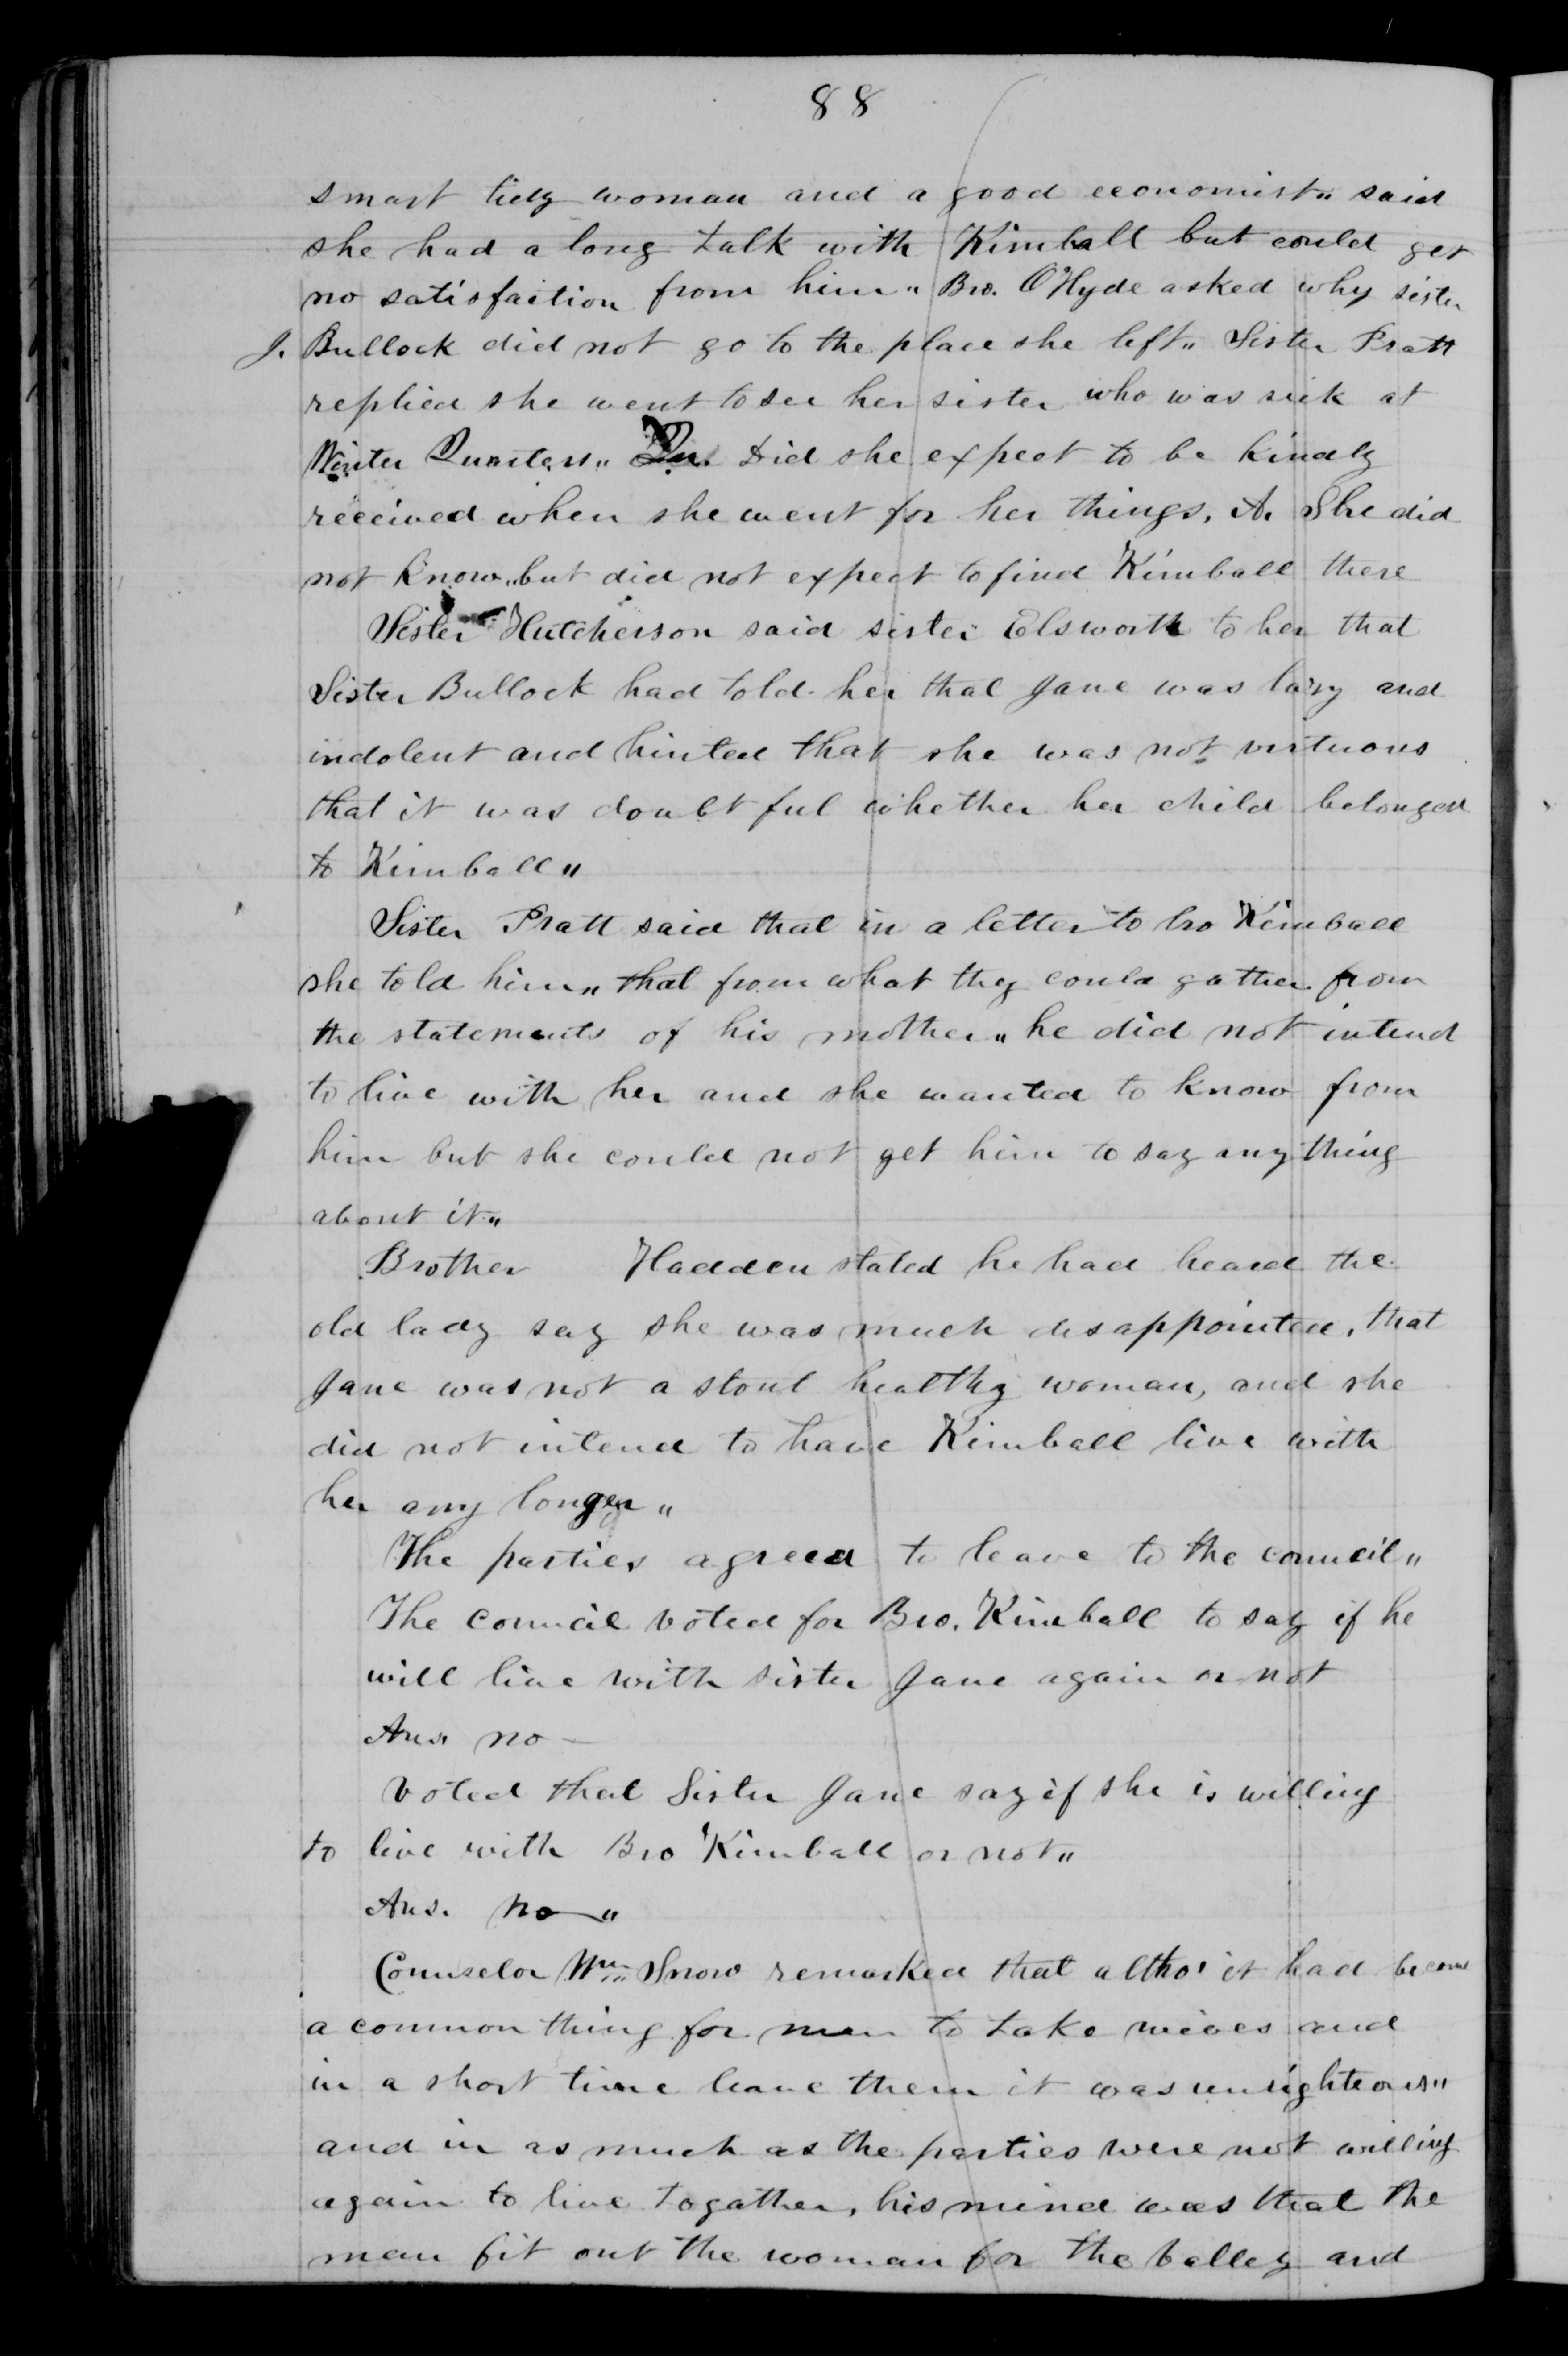 88
smart tidy woman and a good economist" said
she had a long talk with Kimball but could get
no satisfaction from him" Bro. O Hyde asked why sister
J. Bullock did not go to the place she left" Sister Pratt
replied she went to see her sister who was sick at
Winter Quarters" Qu. Did she expect to be kindly
received when she went for her things, A. She did
not know" but did not expect to find Kimball there
Sister Hutcherson said sister Elsworth to her that
Sister Bullock had told her that Jane was lazy and
indolent and hinted that she was not virtuous
that it was doubtful whether her child belonged
to Kimball"
Sister Pratt said that in a letter to bro Kimball
she told him" that from what they could gather from
the statements of his mother" he did not intend
to live with her and she wanted to know from
him but she could not get him to say any thing
about it"
Brother Hadden stated he had heard the
old lady say she was much disappointed, that
Jane was not a stout healthy woman, and she
did not intend to have Kimball live with
her any longer"
The parties agreed to leave to the council"
The council voted for Bro. Kimball to say if he
will live with sister Jane again or not
Ans. no –
Voted that Sister Jane say if she is willing
to live with Bro Kimball or not"
Ans. no – "
Counselor Wm Snow remarked that altho' it had become
a common thing for men to take wives and
in a short time leave them it was unrighteous"
and in as much as the parties were not willing
again to live togather, his mind was that the
man fit out the woman for the valley and